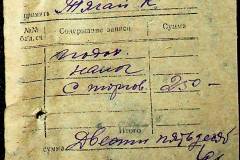 принять Тягай К.
№№ Содержание записи Сумма
подох.
налог
с торгов. 250-
Итого
сумма Двести пятьдесят